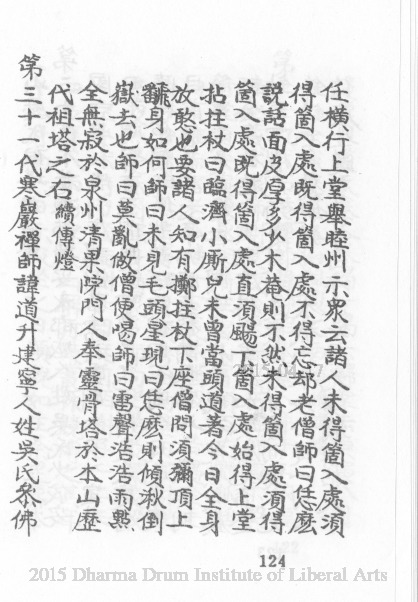 任橫行上堂舉睦州示衆云諸人未得箇入處須
得箇入處既得箇入處不得忘却老僧師曰恁麽
說話面皮厚多少木菴則不然未得箇入處須得
箇入處既得箇入處直須颺下箇入處始得上堂
拈拄杖曰臨濟小厮兒未曾當頭道著今日全身
放憨也要諸人知有擲拄杖下座僧問須彌頂上
翻身如何師曰未見毛頭星現曰恁麽則傾湫倒
嶽去也師曰莫亂做僧便喝師曰雷聲浩浩雨㸃
全無寂於泉州清果院門人奉靈骨塔於本山歷
代祖塔之右續傳燈
第三十一代寒巖禪師諱道升建寧人姓吳氏參佛
124
2015 Dharma Drum Institute of Liberal Arts